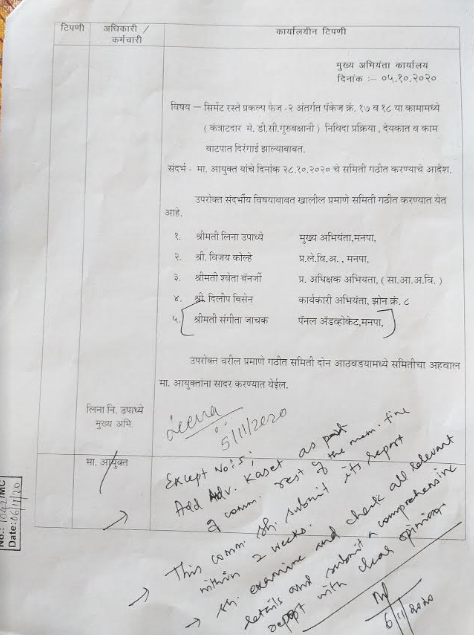 टिपणी
अधिकारी /
कर्मचारी
कार्यालयीन टिपणी
मुख्य अभियंता कार्यालय
दिनांक :– ०५.१०.२०२०
विषय – सिमेंट रस्ते प्रकल्प फेज-२ अंतर्गत पॅकेज क्रं. १७ व १८ या कामामध्ये
( कंत्राटदार मे. डी.सी.गुरुबक्षानी ) निविदा प्रक्रिया, देयकात व काम
वाटपात दिरंगाई झाल्याबाबत.
संदर्भ :– मा. आयुक्त यांचे दिनांक २८.१०.२०२० चे समिती गठीत करण्याचे आदेश.
उपरोक्त संदर्भीय विषयाबाबत खालील प्रमाणे समिती गठीत करण्यात येत
आहे.
१. श्रीमती लिना उपाध्ये मुख्य अभियंता,मनपा,
२. श्री. विजय कोल्हे प्र.ले.वि.अ., मनपा,
३. श्रीमती श्वेता बॅनर्जी प्र. अधिक्षक अभियंता, ( सा.आ.अ.वि. )
४. श्री. दिलीप बिसेन कार्यकारी अभियंता, झोन क्रं. ८
५. श्रीमती संगीता जाचक पॅनल अ‍ॅडव्होकेट,मनपा,
उपरोक्त वरील प्रमाणे गठीत समिती दोन आठवडयामध्ये समितीचा अहवाल
मा. आयुक्तांना सादर करण्यात येईल.
लिना नि. उपाध्ये
मुख्य अभि.
Leena
5/11/2020
मा. आयुक्त
Except No:5.
Add Adv. Kaset as part
of comm. rest of the mem. fine
This comm. sh. submit its report
within 2 weeks.
sh. examine and check all relevant
details and submit a comprehensive
report with clear opinion
6/11/2020
No.
/MC
Date: